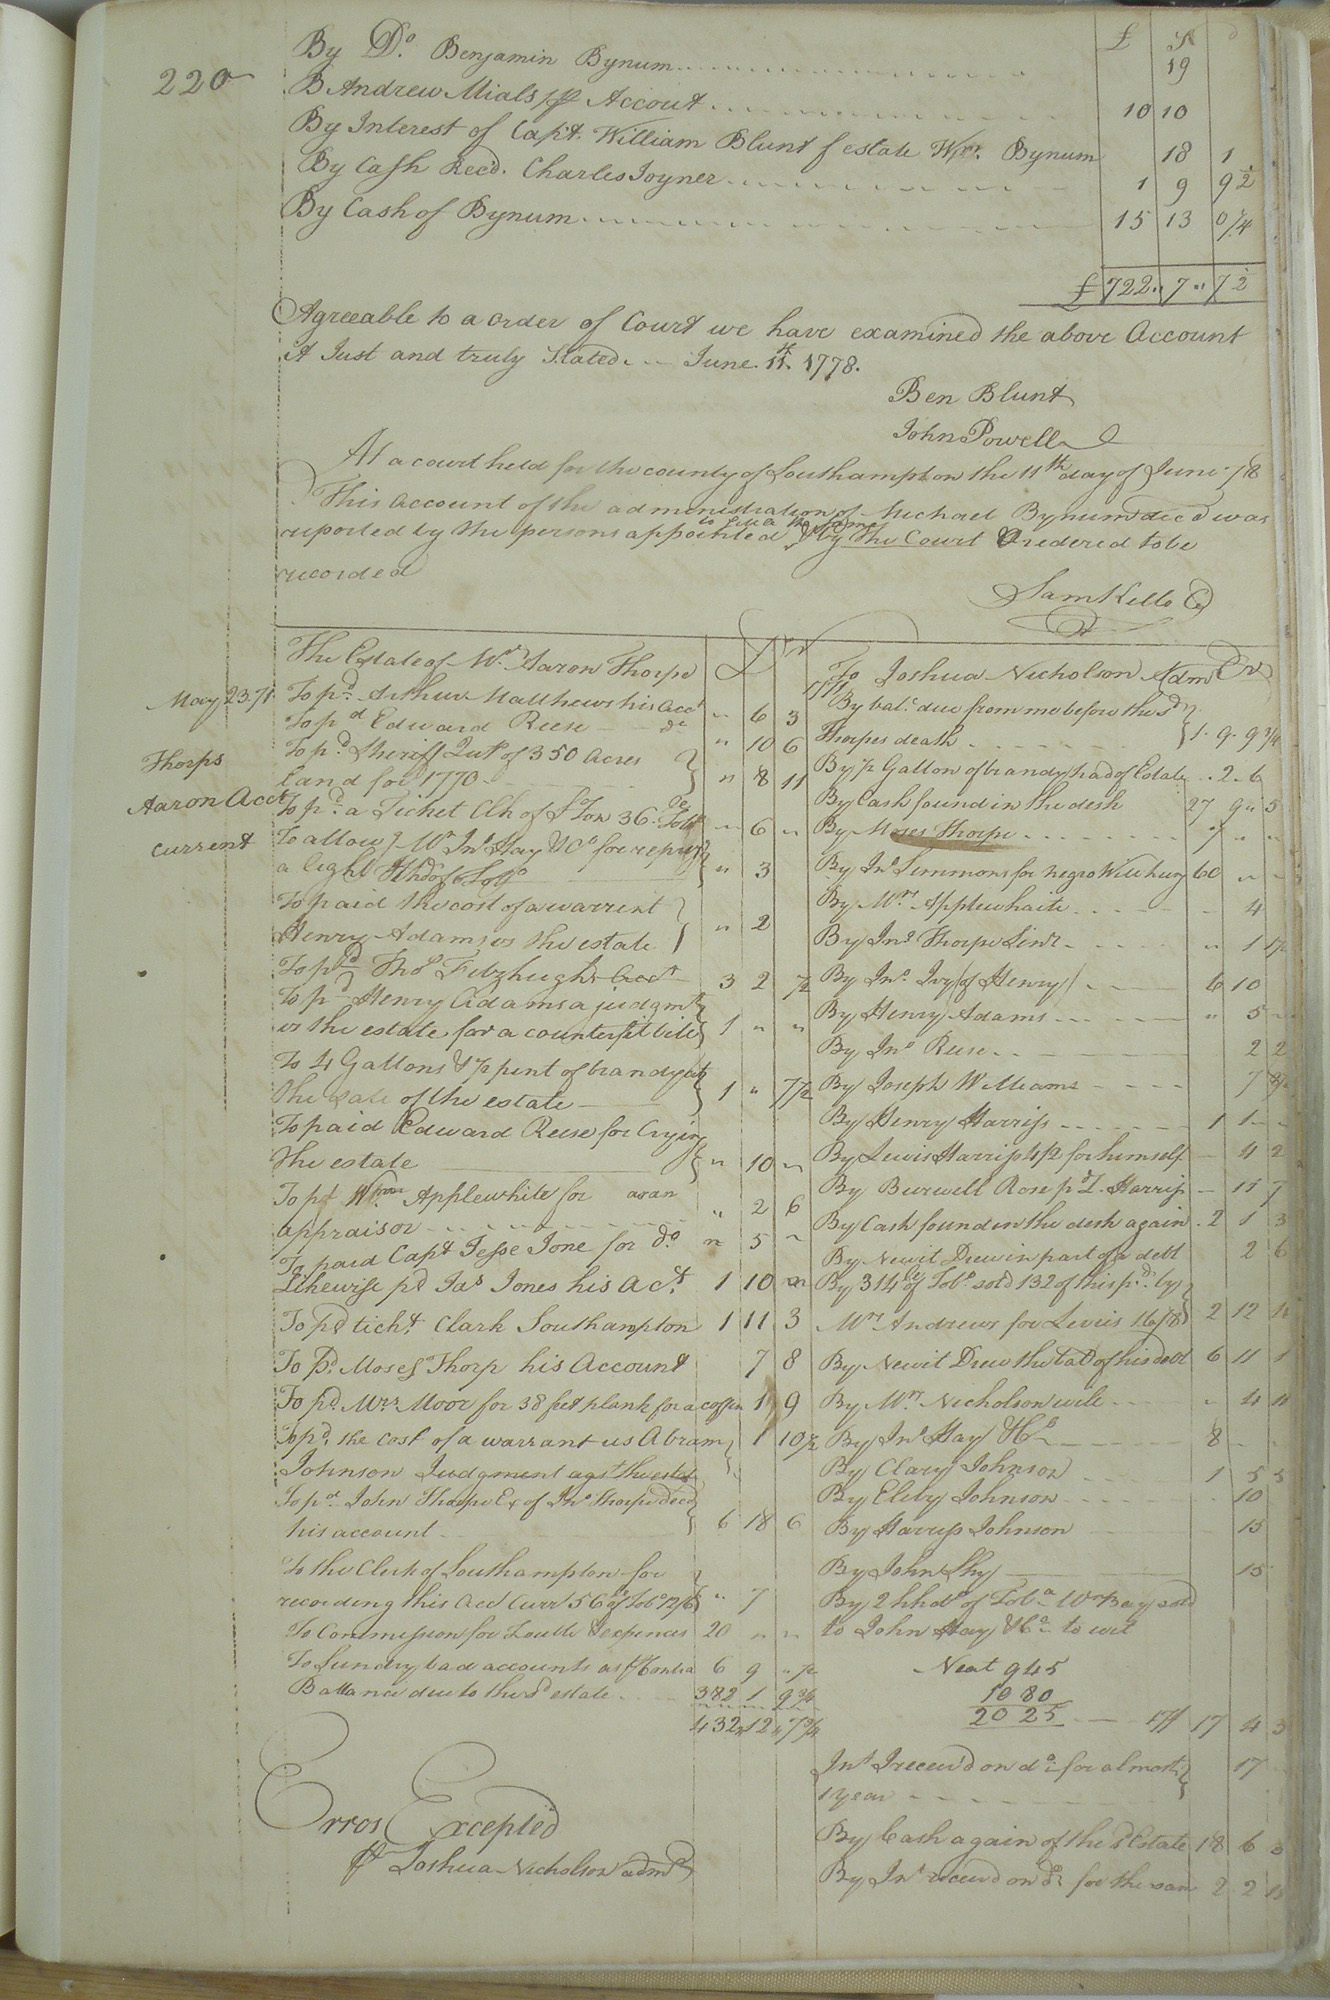 220
£ S d
By Do. Benjamin Bynum 19
B Andrew Mials pp Accout 10 10
By Interest of Capt. William Blunt f estate Wm. Bynum 18 1
By Cash Recd. Charles Joyner 1 9 9 1/2
By Cash of Bynum 15 13 0 1/4
£ 722 " 7 " 7 1/2
Agreeable to a order of Court we have examined the above Account
& Just and truly Stated. June. 11th. 1778.
Ben Blunt
John Powell
At a court held for the county of Southampton the 11th day of June 78
This account of the administration of Michael Bynum decd was
reported by the persons appointed by the Court Oredered to be
recorded
Sam Kello
The Estate of Mr Aaron Thorpe
To Joshua Nicholson Adm Cr
Thorps
Aaron Acct
current
May 23 71 To pd. Arthur Matthews his acct " 6 3
To pd Edward Reese do " 10 6
To pd Sheriff Quts of 350 acres
land for 1770 " 8 11
To pd a Ticket Clk of So Ton 36 Tobo " 6 "
To allowd Mr Jno Hay & Co for
a light Hhd of Tobo " 3
To paid the cost of a warrent
Henry Adams vs the estate " 2
To pd Thos Fitzhugh Acct 3 2 7 1/2
To pd Henry Adams a judgmt
vs the estate for a counterfit bill 1 " "
To 4 Gallons & 1/2 pint of brandy at
the sale of the estate 1 " 7 1/2
To paid Edward Reese for Crying
the estate " 10 "
To pd Wm Applewhite for as an
appraisor " 2 6
To paid Capt Jesse Jone for do " 5 "
Likewise pd Jas Jones his Act 1 10
To pd tickt Clark Southampton 1 11 3
To Pd. Moses Thorp his Account 7 8
To pd Mrs Moor for 38 feet plank for a coffin 1 9
To pd. the cost of a warrant vs Abram 1 10 1/2
Johnson Judgment agst the estd
To pd John Thorpe Ex of Jno Thorpe decd
his account 6 18 6
To the Clerk of Southampton for
recording this acct Curr 56 of Tobo 12/6 " 7
To Commission for Trouble & expences 20 " "
To Sundry bad accounts as p Contra 6 9 " 1/2
Ballance due to the sd estate 382 1 9 3/4
432 " 12 " 7 3/4
Erros Excepted
pr Joshua Nicholson admr
1771
By balc due from me before the sd
Thorpes death 1 9 9 3/4
By 1/2 Gallon of brandy had of Estate 2 6
By Cash found in the desk 27 9 5
By Moses Thorpe
By Jno Simmons for negro Will hung 60 " "
By Mr. Applewhaite 4
By Jno Thorpe Senr " 1
By Jno. Ivy (of Henry) 6 10
By Henry Adams " 5
By Jno Reese 2 2
By Joseph Williams 7
By Henry Harriss 1 1
By Lewis Harriss for himself 4 2
By Burwell Rose pd L. Harriss 11 7
By Cash found in the desk again 2 1 3
By Newit Drew in part of a debt 2 6
By 314 lb of Tobo sold 132 of this pd. by
Mr. Andrews for Levies 16/8 2 12
By Newit Drew the bal of his debt 6 11 1
By Mr. Nicholson 4
By Jno Hay & Co 8
By Clary Johnson 1 5 5
By Elby Johnson 10
By Harriss Johnson 15
By John Shy 15
By 2 hhds of Toba sold
to John Hay & Co to wit
Neat 945
1080
2025 17/ 17 4 3
Int I receivd on do for almost
1 year 17
By Cash again of the sd Estate 18 6
By Int receivd on do for the sam 2 2